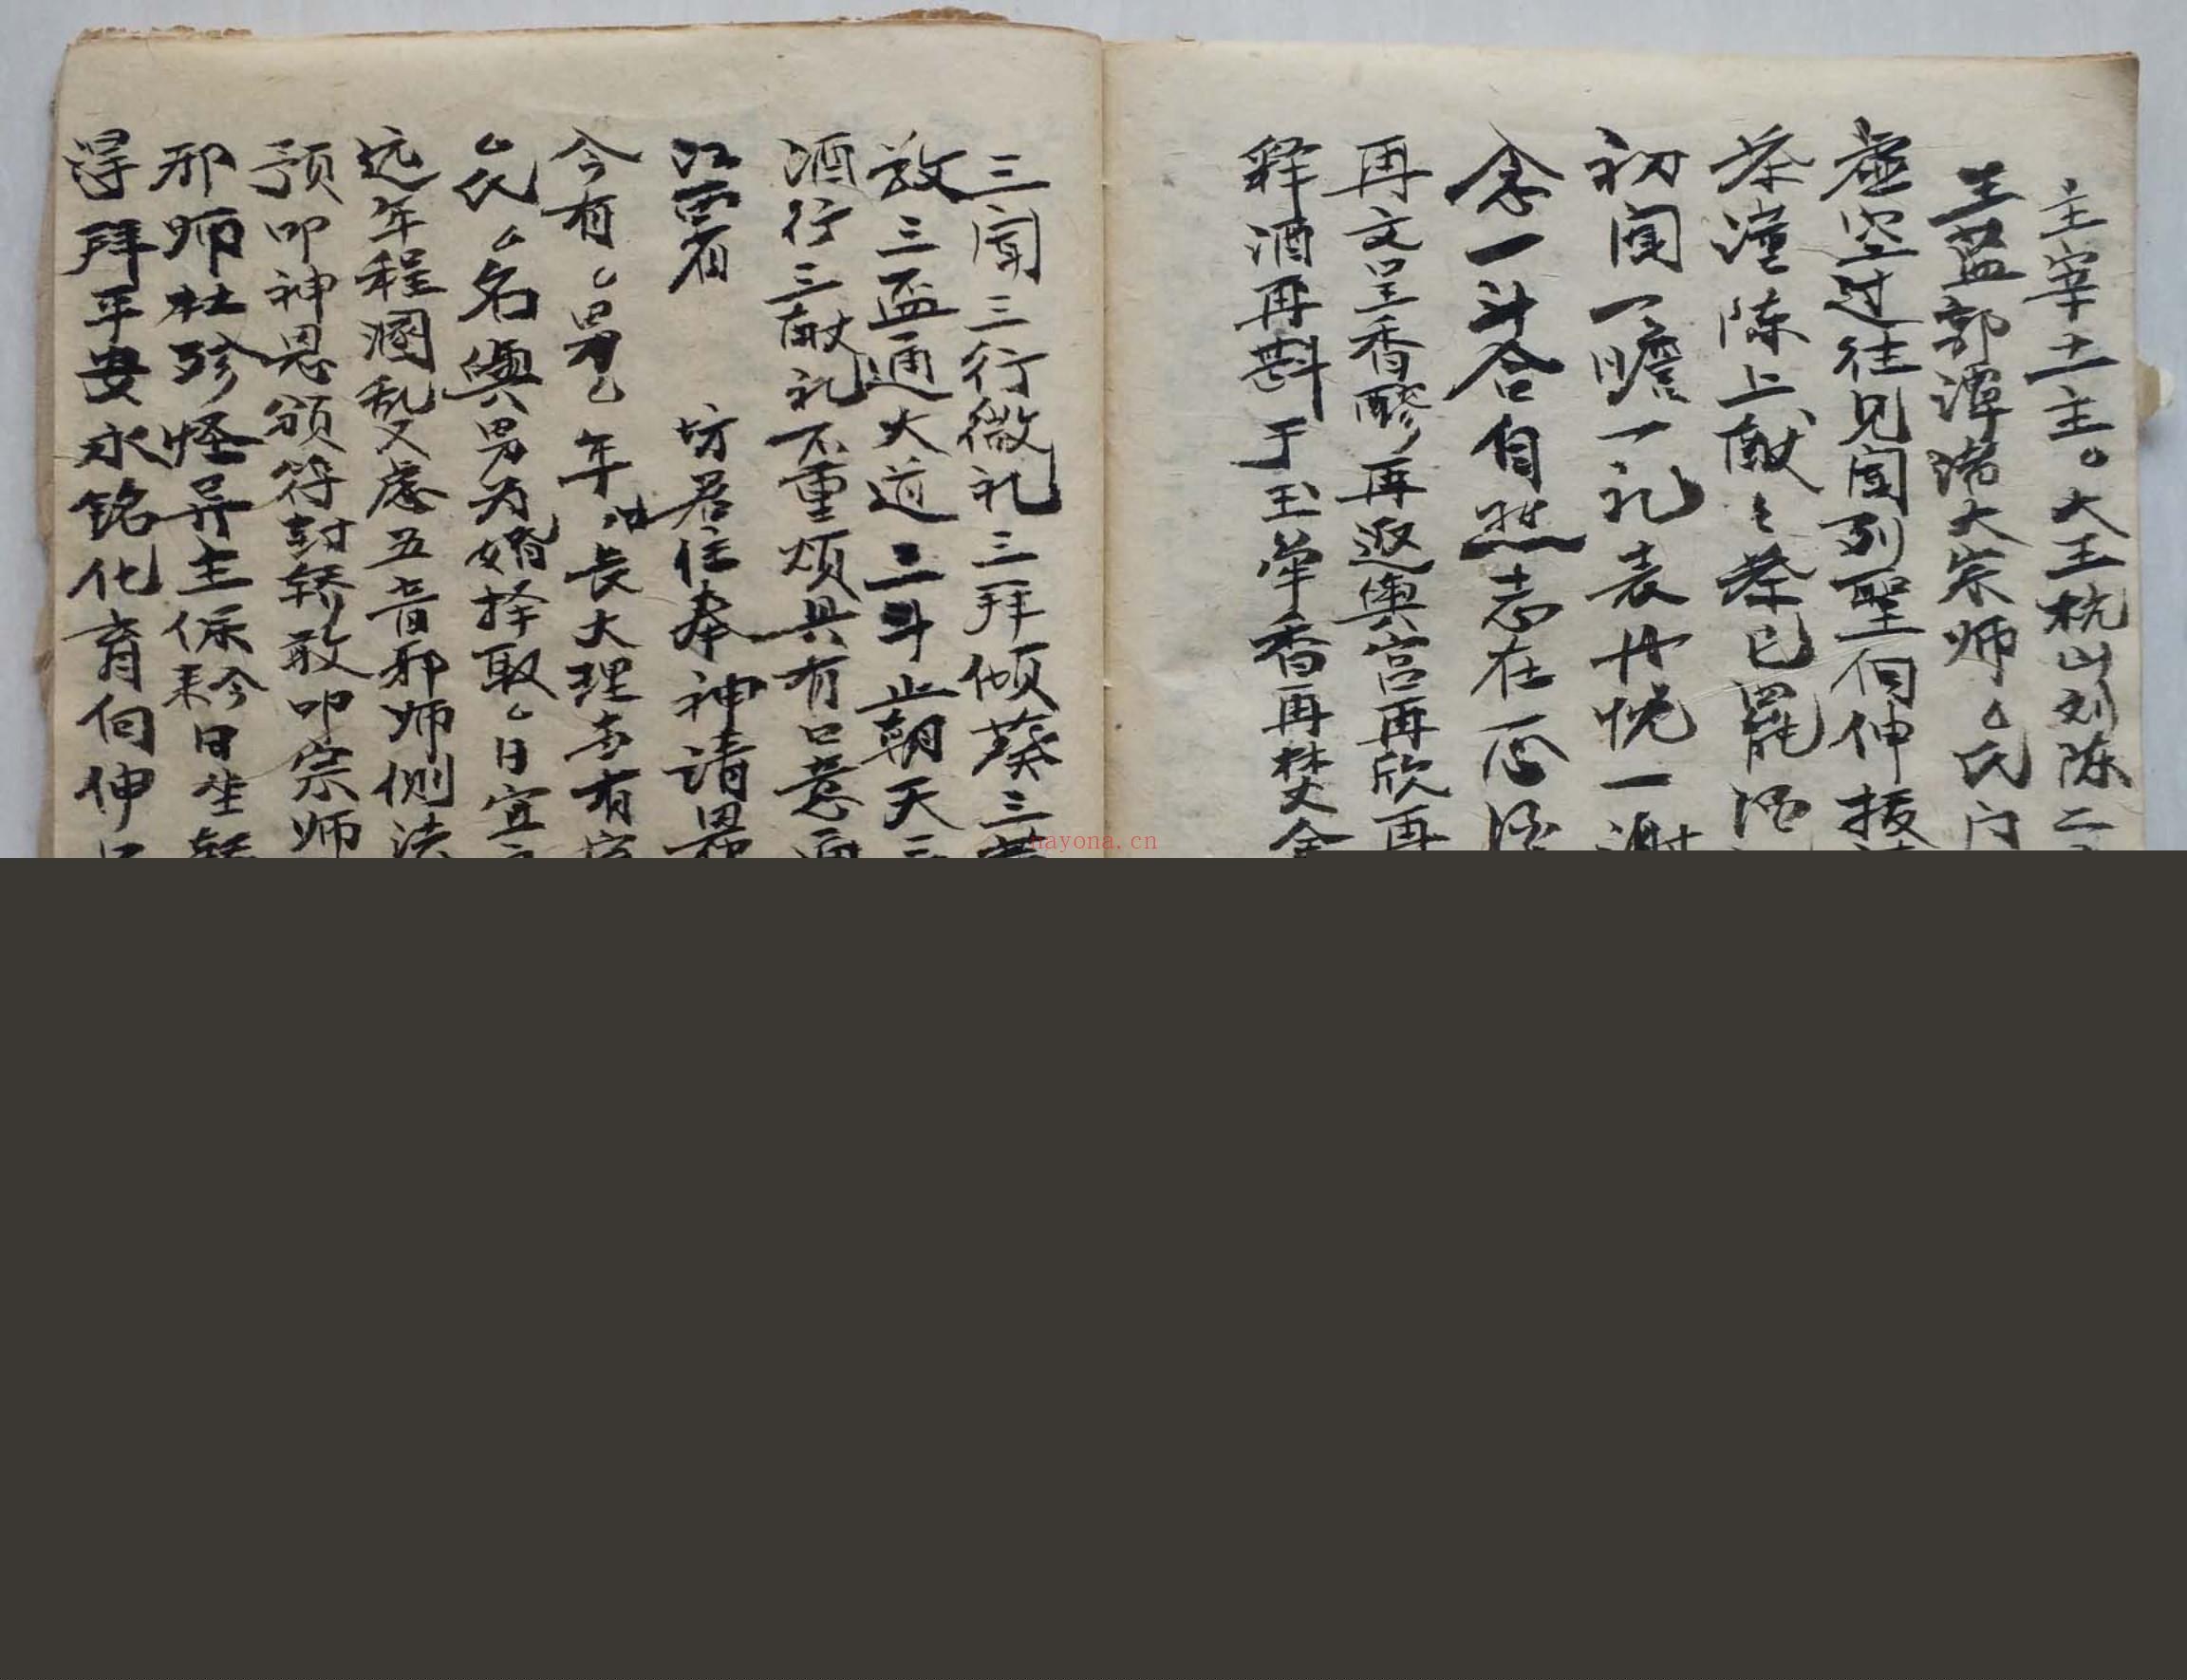 主宰土主。大王杭山刘陈二
王益郭潭诸大宗师厶氏门
虚空过往见闻列聖伺伸拔
茶潼陈上献々茶已罷酒
初闻一瞻一礼表丹忱一谢
念一斗合自然志在
再文呈香醪再返舆宫再欣再
释酒再斟于玉笋香再焚金
三闻三行微礼三拜倾葵三
放三盃通大道三斗止朝天三
酒行三献礼不重烦具有口意
江西省 坊居住奉神请恩
今有厶男厶 年 长大理有
厶氏厶名與男为婚择取厶日宜
远年程溷乱又虑五音邪师侧法
预叩神恩颁符封轿敢叩宗师
邪师杜殄怪异主保 今日坐轿
得拜平安永铭化育伺伸
nayona.cn